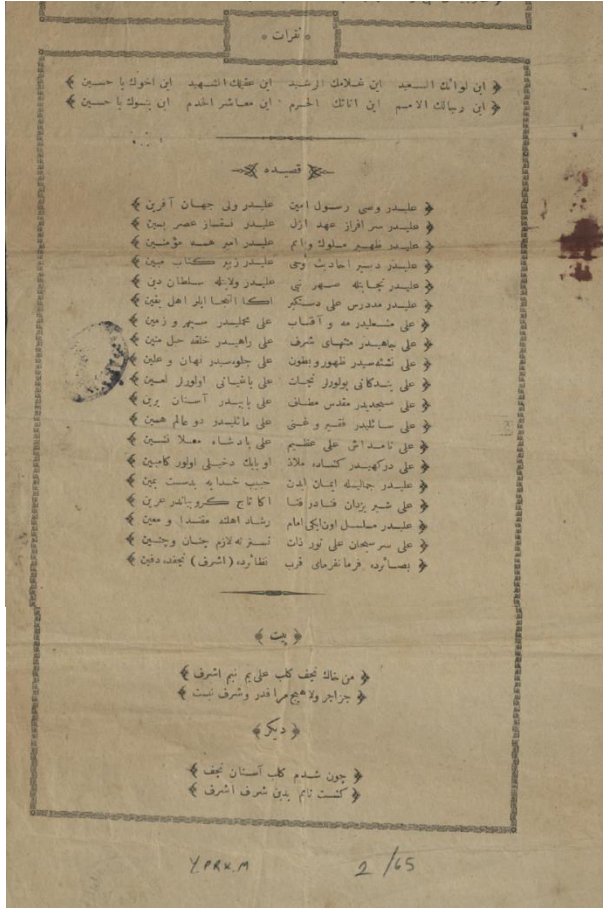 نقرات
این لوائك السعید این غلامك الرشید این عقیلك الشهید این اخوك یا حسین
این رجالك الامم این اثاثك الحرم این معاشر الخدم این بنوك یا حسین
قصیده
علیدر وصی رسول امین علیدر ولی جهان آفرین
علیدر سر افراز عهد ازل علیدر
علیدر ظهیر ملوك وامم علیدر امیر همه مؤمنین
علیدر دبیر احادیث وحی علیدر زبر كتاب مبین
علیدر نجابتله صهر نبی علیدر ولایتله سلطان دین
علیدر مددرس علی دستكیر اكا التجا ایلر اهل یقین
علی مه و آفتاب علی سپهر و زمین
علی منتهای شرف علی خلقه حبل متین
علی نشئه سیدر ظهور و بطون علی جلوه سیدر نهان و علین
علی بندكانی بولورلر نجات علی باغیانی اولورلر لعین
علی مسجدیدر مقدس مطاف علی بابیدر آستان برین
علی سائلیدر فقیر و غنی علی دو عالم همین
علی نامداش علی عظیم علی پادشاه معلا نشین
علی دركهیدر كشاده ملاذ اوبابك دخیلی اولور كامبین
علیدر جمالیله ایمان ایدن حبیب خدایه بدست یمین
علی شیر یزدان فنادر فتا اكا تاج عرین
علیدر مسلسل اون ایكی امام رشاد اهلنه مقتدا و معین
علی سر سبحان علی نور ذات نه لازم چنان و چنین
بصائرده فرمانفرمای قرب نظائرده (اشرف) نجفده دفین
بیت
من خاك نجف كلب علی یم نیم اشرف
جز اجر ولا هیچ مرا قدر و شرف نیست
دیكر
چون شدم كلب آستان نجف
كشت نامم بدین شرف اشرف
Y.PRK.M 2/65